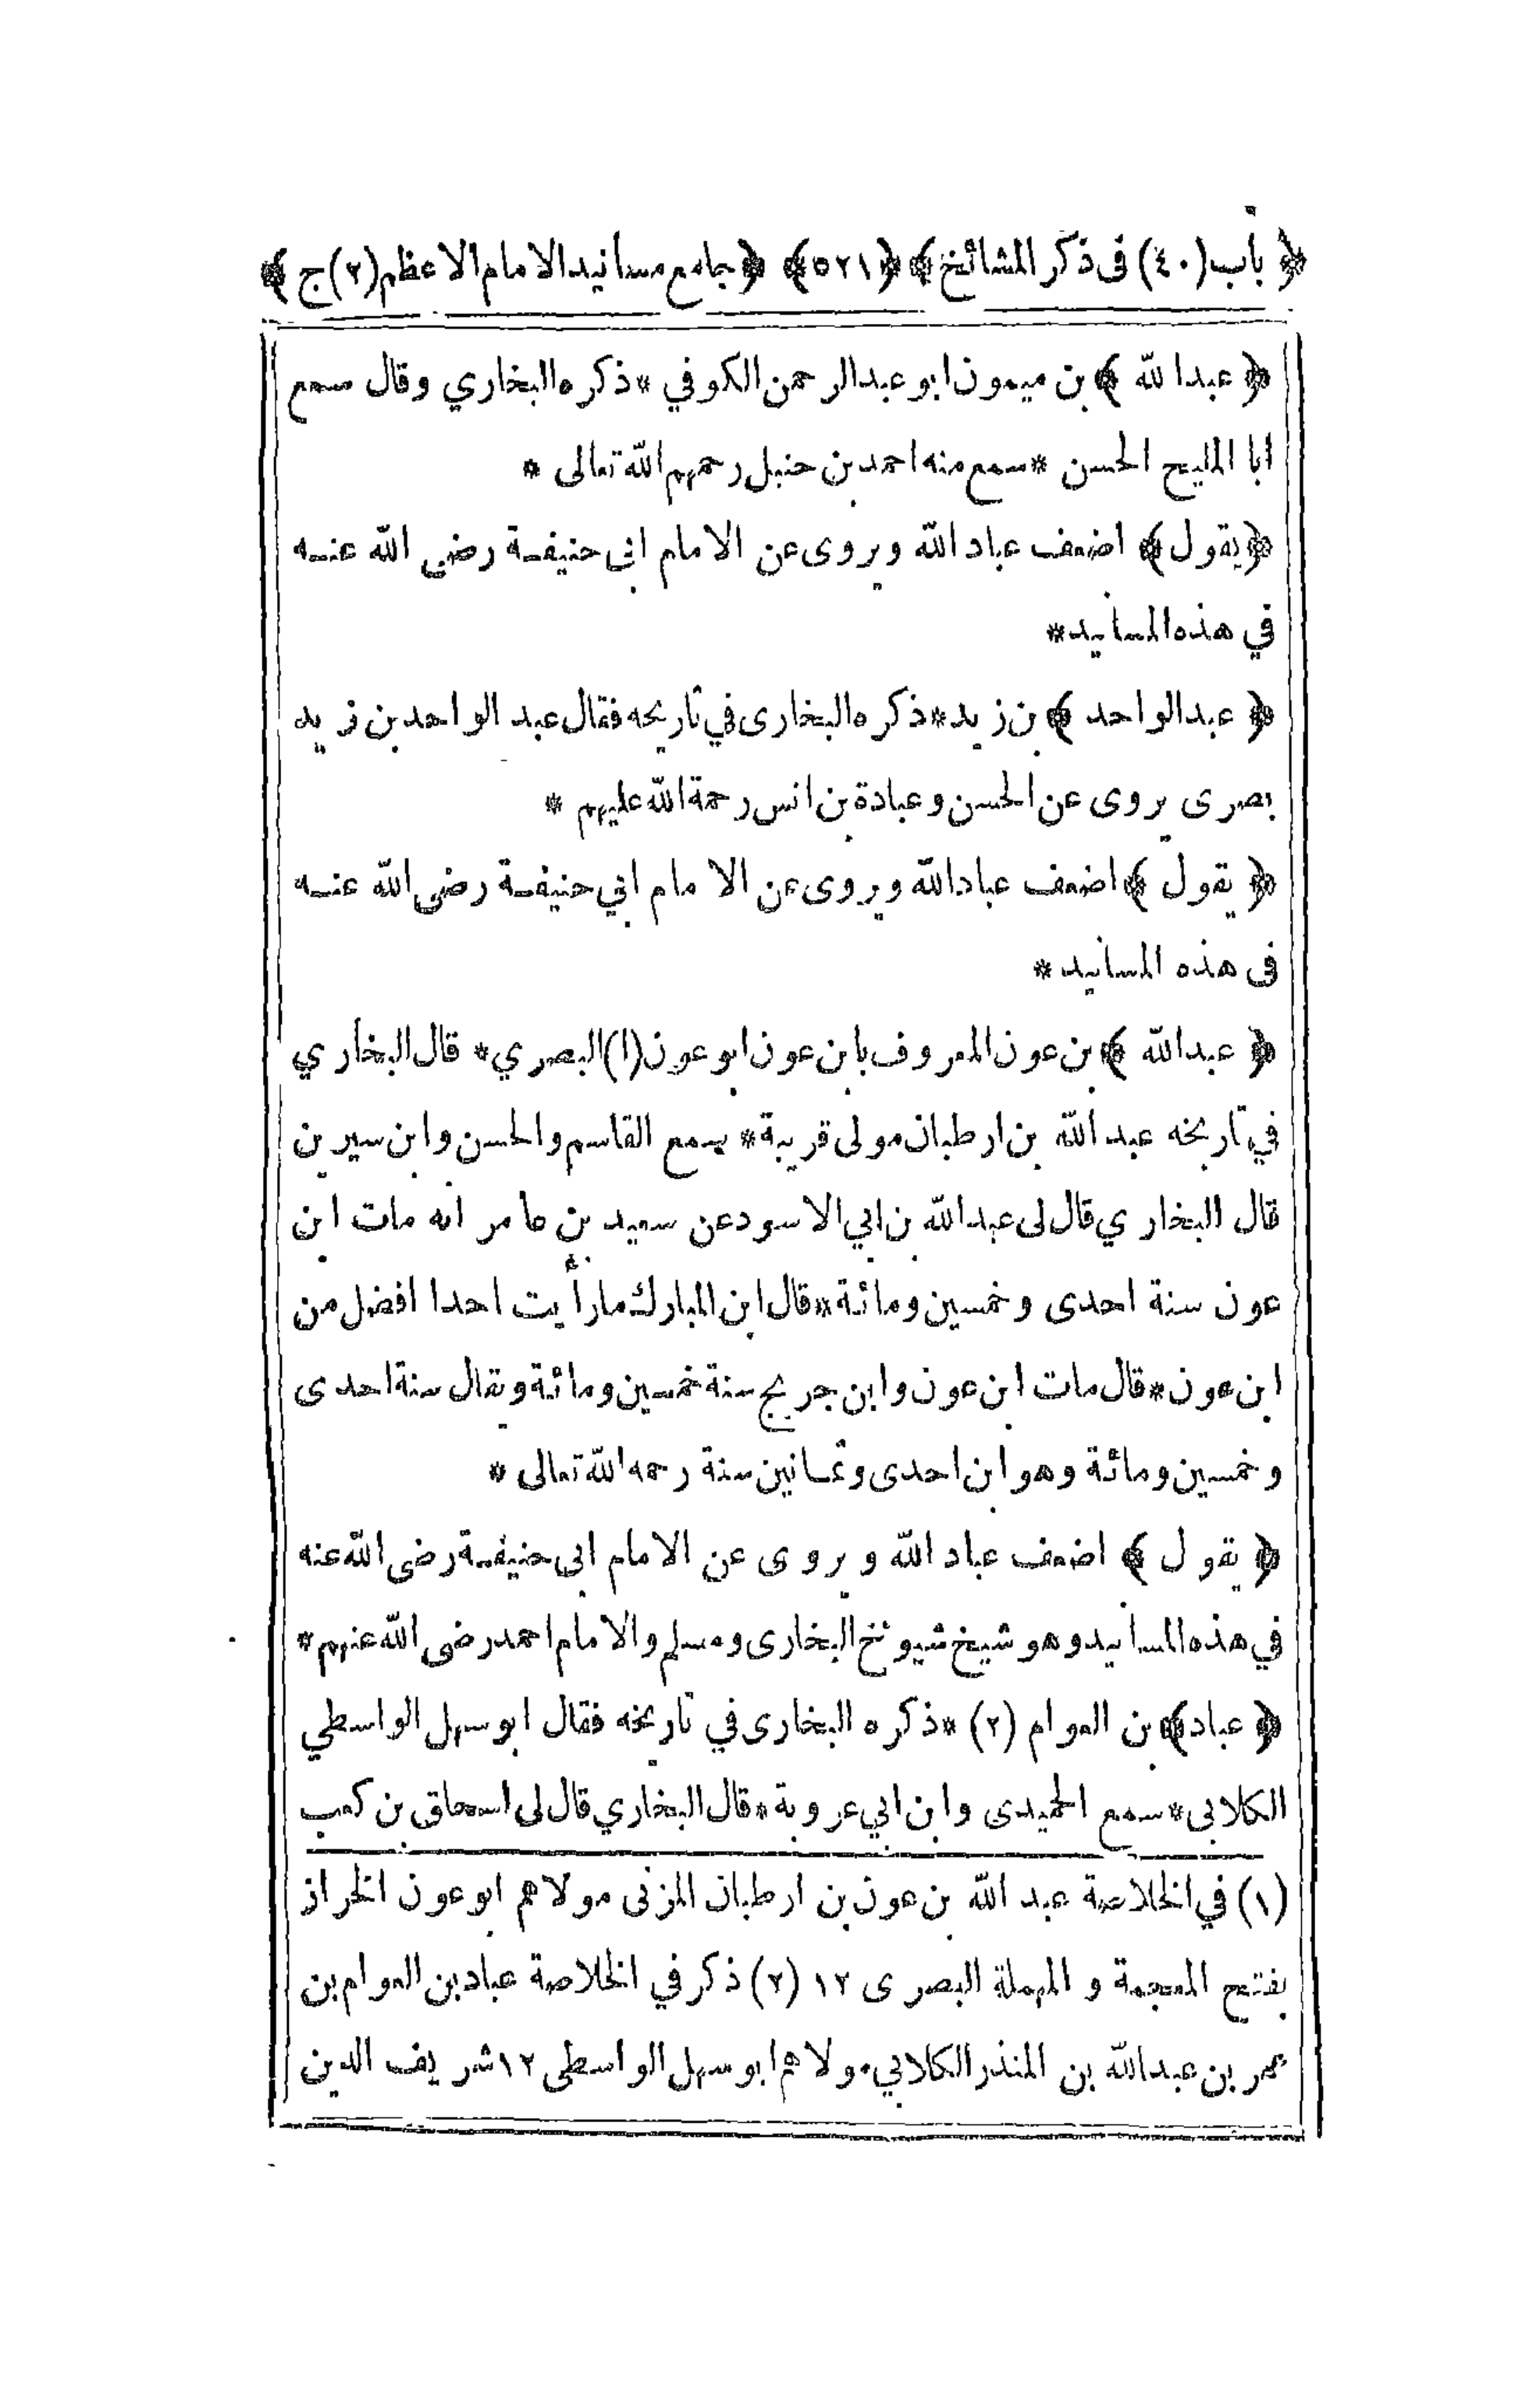 ﴿ باب (٤٠) فى ذكر المشائخ ﴾ ﴿ ٥٢١ ﴾ ﴿ جامع مسانيد الامام الاعظم (٢) ج ﴾
﴿ عبدالله ﴾ بن ميمون ابو عبد الرحمن الكوفي * ذكره البخاري وقال سمع
ابا المليح الحسن * سمع منه احمد بن حنبل رحمهم الله تعالى *
﴿ يقول ﴾ اضعف عباد الله ويروى عن الامام ابى حنيفة رضى الله عنه
في هذه المسانيد *
﴿ عبدالواحد ﴾ بن زيد * ذكره البخارى في تاريخه فقال عبد الواحد بن زيد
بصرى يروى عن الحسن وعبادة بن انس رحمة الله عليهم *
﴿ يقول ﴾ اضعف عباد الله ويروى عن الامام ابي حنيفة رضى الله عنه
فى هذه المسانيد *
﴿ عبدالله ﴾ بن عون المعروف بابن عون ابو عون (١) البصري * قال البخاري
في تاريخه عبد الله بن ارطبان مولى قريبة * يسمع القاسم والحسن وابن سيرين
قال البخاري قال لى عبدالله بن ابي الاسود عن سعيد بن عامر انه مات ابن
عون سنة احدى وخمسين ومائة * قال ابن المبارك ما رأيت احدا افضل من
ابن عون * قال مات ابن عون وابن جريج سنة خمسين ومائة ويقال سنة احدى
وخمسين ومائة وهو ابن احدى وثمانين سنة رحمه الله تعالى *
﴿ يقول ﴾ اضعف عباد الله ويروى عن الامام ابى حنيفة رضى الله عنه
في هذه المسانيد وهو شيخ شيوخ البخارى ومسلم والامام احمد رضى الله عنهم *
﴿ عباد ﴾ بن العوام (٢) * ذكره البخارى في تاريخه فقال ابو سهل الواسطي
الكلابى * سمع الحميدى وابن ابي عروبة * قال البخاري قال لى اسحاق بن كعب
(١) في الخلاصة عبد الله بن عون بن ارطبان المزنى مولاهم ابو عون الخراز
بفتح المعجمة و المهملة البصرى ١٢ (٢) ذكر في الخلاصة عباد بن العوام بن
عمر بن عبدالله بن المنذر الكلابي مولاهم ابو سهل الواسطى ١٢ شريف الدين